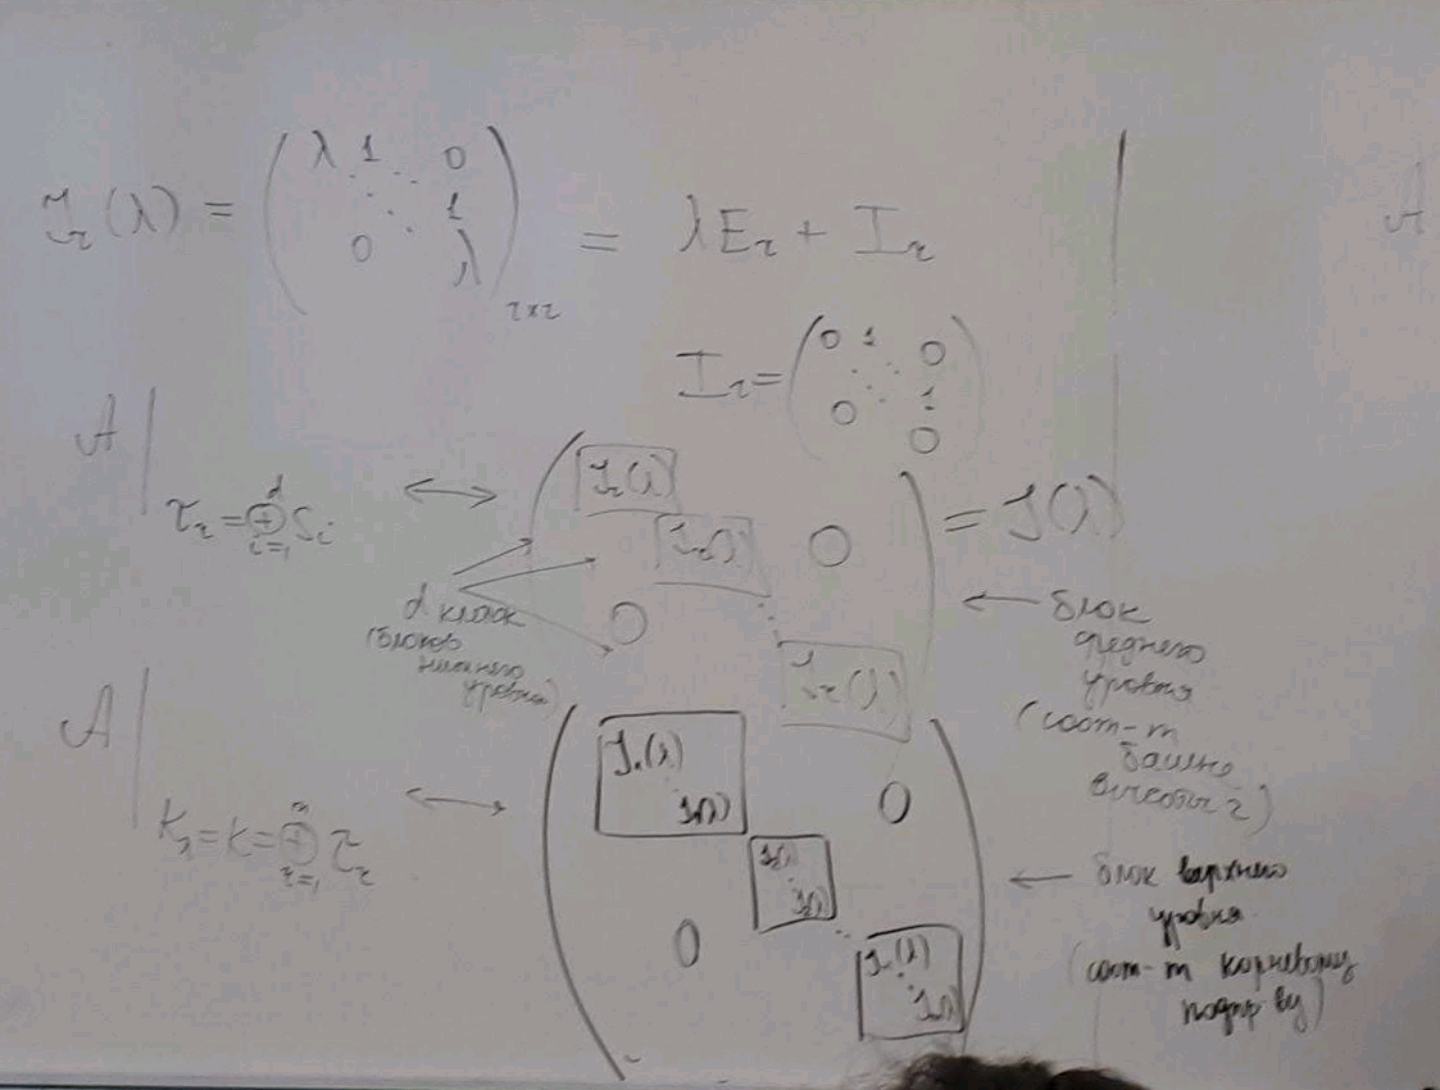 J_r(λ) = ( λ 1 0 ⋱ ⋱ 1 0 λ )_{r×r} = λE_r + I_r
I_r = ( 0 1 0 ⋱ ⋱ 1 0 0 )
A|_{τ_r = ⊕_{i=1}^{d} S_i} ↔ ( J_r(λ) J_r(λ) 0 0 ⋱ J_r(λ) ) = J(λ)
d клеток
(блоков
нижнего
уровня)
← блок
среднего
уровня
(соот-т
башне
высоты r)
A|_{K_λ = K = ⊕_{r=1}^{m} τ_r} ↔ ( J_1(λ) J_1(λ) 0 J_2(λ) J_2(λ) 0 ⋱ J_m(λ) ⋱ J_m(λ) )
← блок верхнего
уровня
(соот-т корневому
подпр-ву)
A